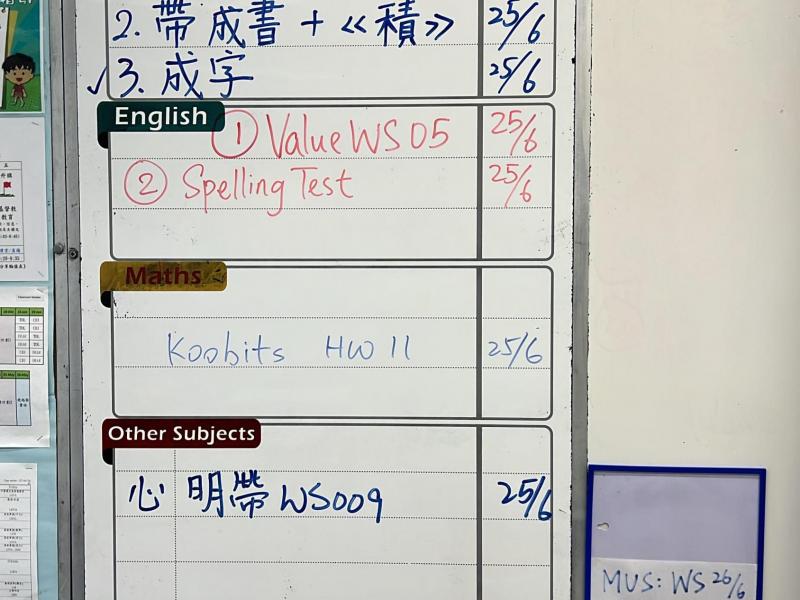 2. 帶 成書 + 《積》 25/6
✓3. 成字 25/6
English
① Value WS 05 25/6
② Spelling Test 25/6
Maths
Koobits HW 11 25/6
Other Subjects
心 明帶 WS009 25/6
MUS: WS 26/6